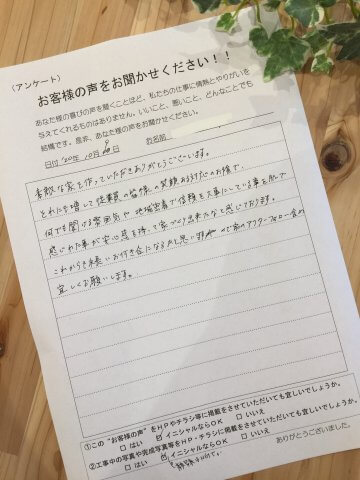 (アンケート)
お客様の声をお聞かせください！！
あなた様の喜びの声を聞くことほど、私たちの仕事に情熱とやりがいを
与えてくれるものはありません。いいこと、悪いこと、どんなことでも
結構です。是非、あなた様の声をお聞かせください。
日付 '20年 10月 日 お名前
素敵な家を作っていただきありがとうございます。
それにも増して従業員の皆様の笑顔お対応のお陰で、
何でも聞ける雰囲気や地域密着で信頼を大事にしている事を肌で
感じれた事が安心感を持って家づくり出来たなと感じております。
これからも末長いお付き合いになると思いますので家のアフターフォロー含め
宜しくお願いします。
①この"お客様の声"をHPやチラシ等に掲載をさせていただいても宜しいでしょうか。
□ はい ☑ イニシャルならOK □ いいえ
②工事中の写真や完成写真等をHP・チラシに掲載をさせていただいても宜しいでしょうか。
□ はい ☑ イニシャルならOK □ いいえ
ありがとうございました。